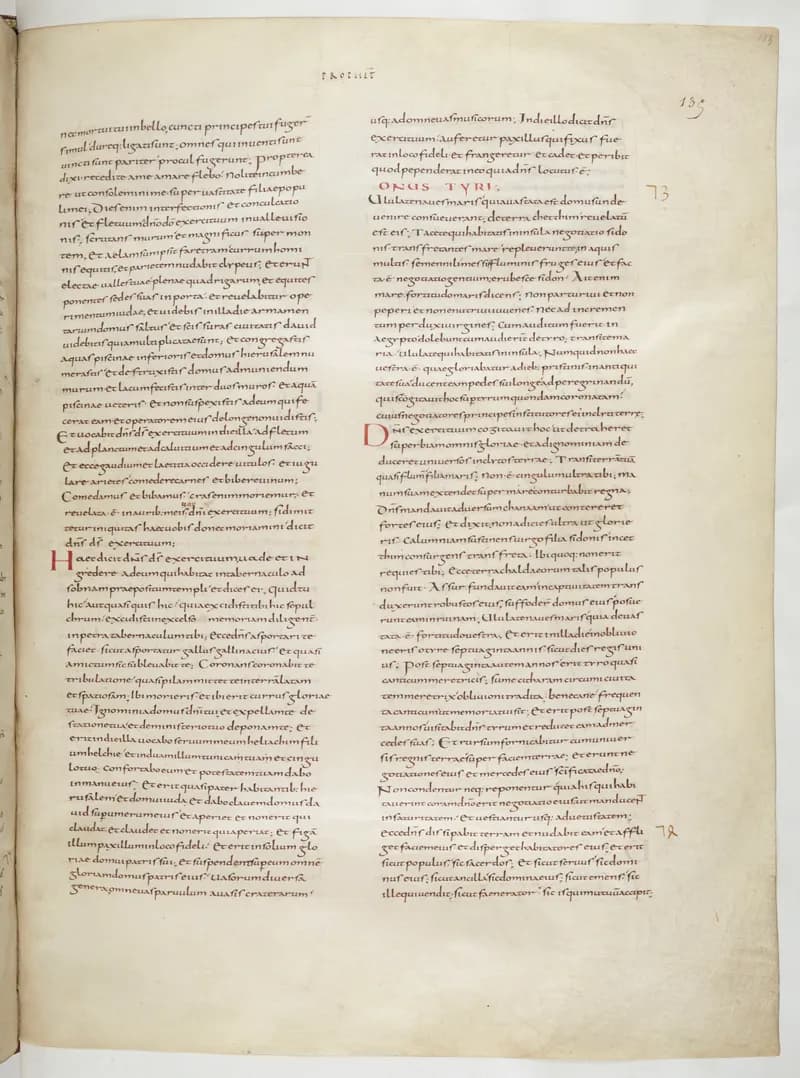 PROPHET
139
nec mortui tui in bello, cuncti principes tui fuger̄
simul dureq: ligati sunt; omnes qui inuenti sunt
uincti sunt pariter procul fugerunt; Propterea
dixi recedite a me amare flebo; Nolite incumbe
re ut consolemini me super uastitate filiae popu
li mei; Dies enim interfectionis et conculcatio
nis et fletuum dn̄o dō exercituum in ualle uisio
nis; scrutans murum et magnificus super mon
tem, et aelam sumpsit faretram currum homi
nis equitis, et parietem nudabit clypeus; et erun̄
electae ualles tuae plenae quadrigarum, et equites
ponent sedes suas in porta, et reuelabitur ope
rimentum iudae, et uidebis in illa die armamen
tarium domus saltus, et scissuras ciuitatis dauid
uidebitis quia multiplicatae sunt; et congregastis
aquas piscinae inferioris, et domus hierusalem nu
merastis, et destruxistis domus ad muniendum
murum, et lacum fecistis inter duos muros; et aquā
piscinae ueteris, et non suspexistis ad eum qui fe
cerat eam, et operatorem eius de longe non uidistis;
Et uocabit dn̄s ds̄ exercituum in die illa ad fletum
et ad planctum et ad caluitium et ad cingulum sacci;
et ecce gaudium et laetitia occidere uitulos; et iugu
lare arietes comedere carnes et bibere uinum;
Comedamus et bibamus, cras enim moriemur; et
reuelata ē in aurib: meis dn̄i exercituum; si dimit
tetur iniquitas haec uobis donec moriamini dicit
dn̄s ds̄ exercituum;
Haec dicit dn̄s ds̄ exercituum, uade et in
gredere ad eum qui habitat in tabernaculo ad
sobnam praepositum templi et dices ei, quid tu
hic aut quasi quis hic, quia excidisti tibi hic sepul
chrum, excidisti in excelso memoriam diligent̄
in petra tabernaculum tibi; ecce dn̄s asportari te
faciet sicut asportatur gallus gallinacius; et quasi
amictum sic subleuabit te; Coronans coronabit te
tribulatione, quasi pilam mittet te in terrā latam
et spatiosam, ibi morieris et ibi erit currus gloriae
tuae, Ignominia domus dn̄i tui, et expellam te de
statione tua, et de ministerio tuo deponam te; et
erit in die illa uocabo seruum meum heliachim fili
um helchie, et induam illum tunicam tuam, et cingu
lo tuo confortabo eum, et potestatem tuam dabo
in manu eius; et erit quasi pater habitantib: hie
rusalem, et domui iuda, et dabo clauem domus da
uid super umerum eius, et aperiet et non erit qui
claudat, et claudet et non erit qui aperiat; et figā
illum paxillum in loco fideli, et erit in solium glo
riae domui patris sui, et suspendent super eum omnē
gloriam domus patris eius, Uasorum diuersa
genera omne uas paruulum, a uasis craterarum
usq: ad omne uas musicorum; In die illo dicit dn̄s
exercituum, auferetur paxillus qui fixus fue
rat in loco fideli, et frangetur et cadet et peribit
quod pependerat in eo quia dn̄s locutus ē;
ONUS TYRI;
73
Ululate naues maris quia uastata est domus unde
uenire consueuerant; de terra chetthim reuelatū
est eis; Tacete qui habitatis in insula, negotiatio sido
nis transfretantes mare repleuerunt te, in aquis
multis, semen nili messis fluminis fruges eius et fac
ta ē negotiatio gentium, erubesce sidon, Ait enim
mare fortitudo maris dicens; Non parturiui et non
peperi et non enutriui iuuenes, Nec ad incremen
tum perduxi uirgines; Cum auditum fuerit in
Aegypto dolebunt cum audierit de tyro; transite ma
ria, ululate qui habitatis in insula; Numquid non haec
uestra ē, quae gloriabatur a dieb: pristinis in antiqui
tate sua, ducent eam pedes sui longe ad peregrinandū,
quis cogitauit hoc super tyrum quondam coronatam,
cuius negotiatores principes, institutores eius incliti terre;
Dn̄s exercituum cogitauit hoc, ut detraheret
superbiam omnis gloriae, et ad ignominiam de
duceret uniuersos inclytos terrae; Transi terrā tuā
quasi flum̄ filia maris, Non ē cingulum ultra tibi; ma
num suam extendit super mare, conturbabit regna;
Dn̄s mandauit aduersum chanaam, ut contereret
fortes eius; Et dixit non adicies ultra ut glorie
ris, Calumniam sustinens uirgo filia sidonis in cet
thim consurgens transfreta, ibi quoq: non erit
requies tibi; Ecce terra chaldaeorum talis populus
non fuit, Assur fundauit eam in captiuitatem trans
duxerunt robustos eius, suffoder̄ domus eius posue
runt eam in ruinam, Ululate naues maris quia deuas
tata ē fortitudo uestra; Et erit in illa die in obliuio
ne eris o tyre septuaginta annis, sicut dies regis uni
us; Post septuaginta autem annos erit tyro quasi
canticum meretricis; sume citharam circumi ciuita
tem meretrix obliuioni tradita, bene cane frequen
ta canticum ut memoria tui sit; Et erit post septuagin
ta annos uisitabit dn̄s tyrum et reducet eam ad mer
cedes suas; Et rursum fornicabitur cum uniuer
sis regnis terrae super faciem terrae; et erunt ne
gotiationes eius et mercedes eius sc̄ificatae dn̄o;
Non condentur neq: reponentur, quia his qui habi
tauerint coram dn̄o erit negotiatio eius ut manducen̄
in saturitatem, et uestiantur usq: ad uetustatem;
ecce dn̄s dissipabit terram et nudabit eam et affli
74
get faciem eius et disperget habitatores eius; et erit
sicut populus, sic sacerdos; et sicut seruus sic domi
nus eius; sicut ancilla sic domina eius; sicut emens, sic
ille qui uendit; sicut faenerator sic is qui mutuum accipit;